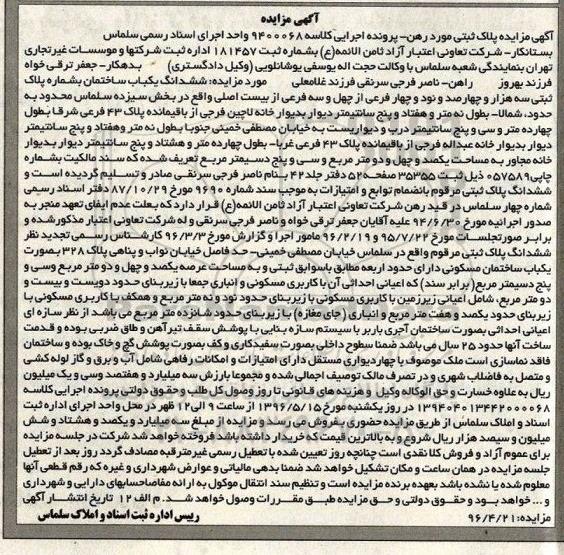 آگهی مزایده
آگهی مزایده پلاک ثبتی مورد رهن- پرونده اجرایی کلاسه ۹۴۰۰۰۶۸ واحد اجرای اسناد رسمی سلماس
بستانکار- شرکت تعاونی اعتبار آزاد ثامن الائمه(ع) بشماره ثبت ۱۸۱۴۵۷ اداره ثبت شرکتها و موسسات غیرتجاری
تهران بنمایندگی شعبه سلماس با وکالت حجت اله یوسفی یوشانلویی (وکیل دادگستری) بدهکار- جعفر ترقی خواه
فرزند بهروز راهن- ناصر فرجی سرنقی فرزند غلامعلی مورد مزایده: ششدانگ یکباب ساختمان بشماره پلاک
ثبتی سه هزار و چهارصد و نود و چهار فرعی از چهل و سه فرعی از بیست اصلی واقع در بخش سیزده سلماس محدود به
حدود، شمالا- بطول نه متر و هفتاد و پنج سانتیمتر دیوار بدیوار خانه لاچین فرجی از باقیمانده پلاک ۴۳ فرعی شرقا بطول
چهارده متر و سی و پنج سانتیمتر درب و دیواریست به خیابان مصطفی خمینی جنوبا بطول نه متر وهفتاد و پنج سانتیمتر
دیوار بدیوار خانه عبداله فرجی از باقیمانده پلاک ۴۳ فرعی غربا- بطول چهارده متر و هشتاد و پنج سانتیمتر دیوار بدیوار
خانه مجاور به مساحت یکصد و چهل و دو متر مربع و سی و پنج دسیمتر مربع تعریف شده که سند مالکیت بشماره
چاپی۰۵۷۵۸۹ ذیل ثبت ۳۵۳۵۵ صفحه۵۲ دفتر جلد۴۲ بنام ناصر فرجی سرنقی صادر و تسلیم گردیده است و
ششدانگ پلاک ثبتی مرقوم بانضمام توابع و امتیازات به موجب سند شماره ۹۶۹۰ مورخ ۸۷/۱۰/۲۹ دفتر اسناد رسمی
شماره چهار سلماس در قید رهن شرکت تعاونی اعتبار آزاد ثامن الائمه(ع) قرار دارد که بعلت عدم ایفای تعهد منجر به
صدور اجرائیه مورخ ۹۴/۶/۳۰ علیه آقایان جعفر ترقی خواه و ناصر فرجی سرنقی و له شرکت تعاونی اعتبار مذکورشده و
برابر صورتجلسات مورخ ۹۵/۷/۲۲ و ۹۶/۲/۱۹ مامور اجرا و گزارش مورخ ۹۶/۳/۳ کارشناس رسمی تجدید نظر
ششدانگ پلاک ثبتی مرقوم واقع در سلماس خیابان مصطفی خمینی- حد فاصل خیابان نواب و پناهی پلاک ۳۲۸ بصورت
یکباب ساختمان مسکونی دارای حدود اربعه مطابق باسوابق ثبتی و به مساحت عرصه یکصد و چهل و دو متر مربع وسی و
پنج دسیمتر مربع(برابر سند) که اعیانی احداثی آن با کاربری مسکونی و انباری جمعا با زیربنای حدود دویست و بیست و
دو متر مربع، شامل اعیانی زیرزمین با کاربری مسکونی با زیربنای حدود نود و نه متر مربع و همکف با کاربری مسکونی با
زیربنای حدود یکصد و هفت متر مربع و انباری (جای مغازه) با زیربنای حدود شانزده متر مربع می باشد از نظر سازه ای
اعیانی احداثی بصورت ساختمان آجری باربر با سیستم سازه بنایی با پوشش سقف تیرآهن و طاق ضربی بوده و قدمت
ساخت آنها حدود ۲۵ سال می باشد ضمنا سطوح داخلی بصورت سفیدکاری و کف بصورت پوشش گچ و خاک بوده و ساختمان
فاقد نماسازی است ملک موصوف با چهاردیواری مستقل دارای امتیازات و امکانات رفاهی شامل آب و برق و گاز لوله کشی
و متصل به فاضلاب شهری و در تصرف مالک توصیف اجمالی شده و مجموعا بارزش سه میلیارد و هفتصد وسی و یک میلیون
ریال به علاوه خسارت و حق الوکاله وکیل و هزینه های قانونی تا روز وصول کل طلب و حقوق دولتی پرونده اجرایی کلاسه
۱۳۹۴۰۴۰۱۳۴۴۲۰۰۰۰۶۸ در روز یکشنبه مورخ ۱۳۹۶/۵/۱۵ از ساعت ۹ الی ۱۲ ظهر در محل واحد اجرای اداره ثبت
اسناد و املاک سلماس از طریق مزایده حضوری بفروش می رسد و مزایده از مبلغ سه میلیارد و یکصد و هشتاد و شش
میلیون و سیصد هزار ریال شروع و به بالاترین قیمت که خریدار داشته باشد فروخته خواهد شد شرکت در جلسه مزایده
برای عموم آزاد و فروش کلا نقدی است چنانچه روز تعیین شده با تعطیل رسمی غیرمترقبه مصادف گردد روز بعد از تعطیل
جلسه مزایده در همان ساعت و مکان تشکیل خواهد شد ضمنا بدهی مالیاتی و عوارض شهرداری و غیره که رقم قطعی آنها
معلوم شده یا نشده باشد بعهده برنده مزایده است و تنظیم سند انتقال موکول به ارائه مفاصاحسابهای دارایی و شهرداری
و ... خواهد بود و حقوق دولتی و حق مزایده طبق مقررات وصول خواهد شد. م الف ۱۲ تاریخ انتشار آگهی
مزایده: ۹۶/۴/۲۱ رییس اداره ثبت اسناد و املاک سلماس